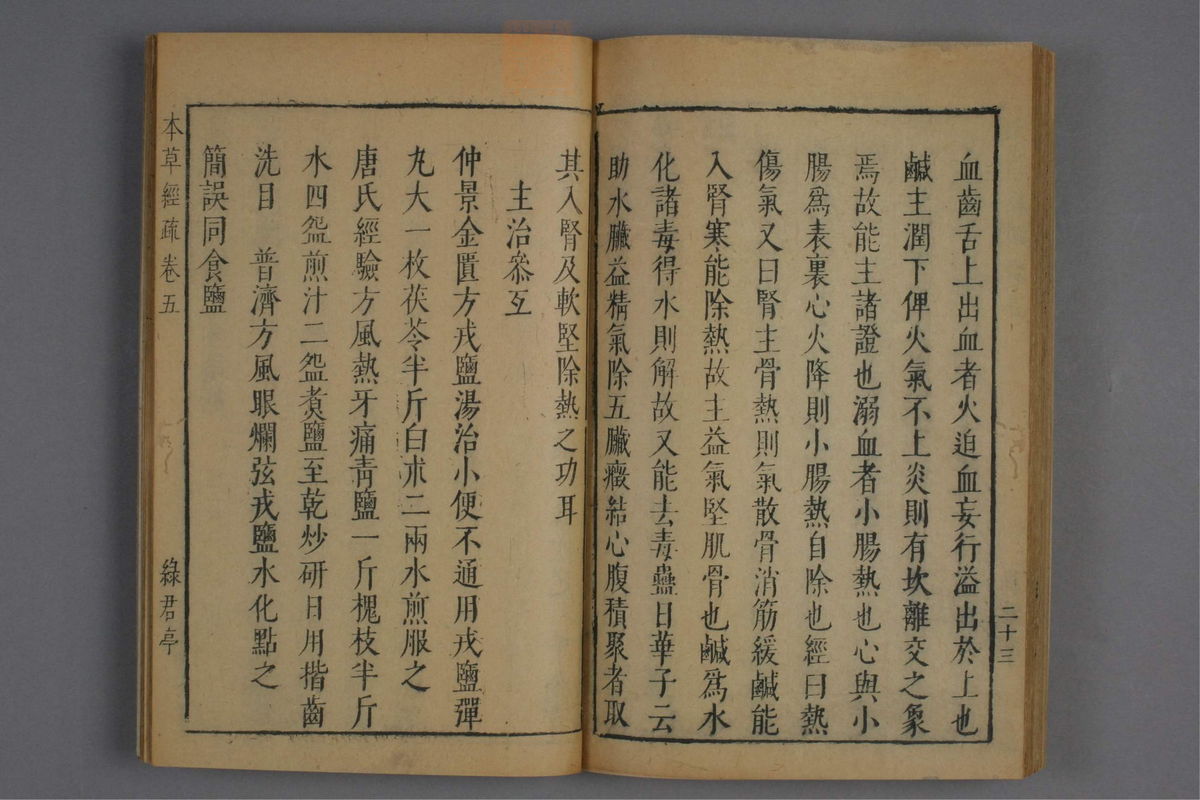 血齒舌上出血者火迫血妄行溢出於上也
鹹主潤下俾火氣不上炎則有坎離交之象
焉故能主諸證也溺血者小腸熱也心與小
腸爲表裏心火降則小腸熱自除也經曰熱
傷氣又曰腎主骨熱則氣散骨消筋緩鹹能
入腎寒能除熱故主益氣堅肌骨也鹹爲水
化諸毒得水則解故又能去毒蠱日華子云
助水臟益精氣除五臟癥結心腹積聚者取
二十三
其入腎及軟堅除熱之功耳
主治叅互
仲景金匱方戎鹽湯治小便不通用戎鹽彈
丸大一枚茯苓半斤白朮二兩水煎服之
唐氏經驗方風熱牙痛青鹽一斤槐枝半斤
水四盌煎汁二盌煮鹽至乾炒研日用揩齒
洗目 普濟方風眼爛弦戎鹽水化點之
簡誤同食鹽
本草經疏 卷五 綠君亭